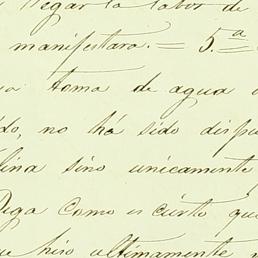 llegar la labor de
manifestara. = 5.ª
toma de agua
do, no há sido dispu
lina sino unicamente
Diga como es cierto que
ue hiso ultimamente